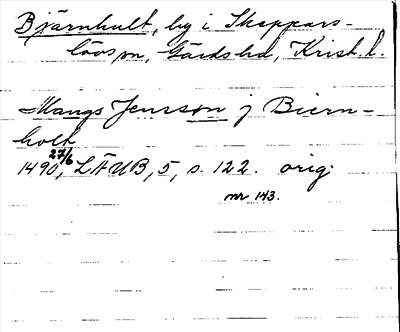 Bjärnhult, by i Skeppars-
lövs sn, Gärds hd, Krist. l.
Mangs Jensson j Biern-
holt
1490 27/6, LÄUB, 5, s. 122. orig.
nr 143.